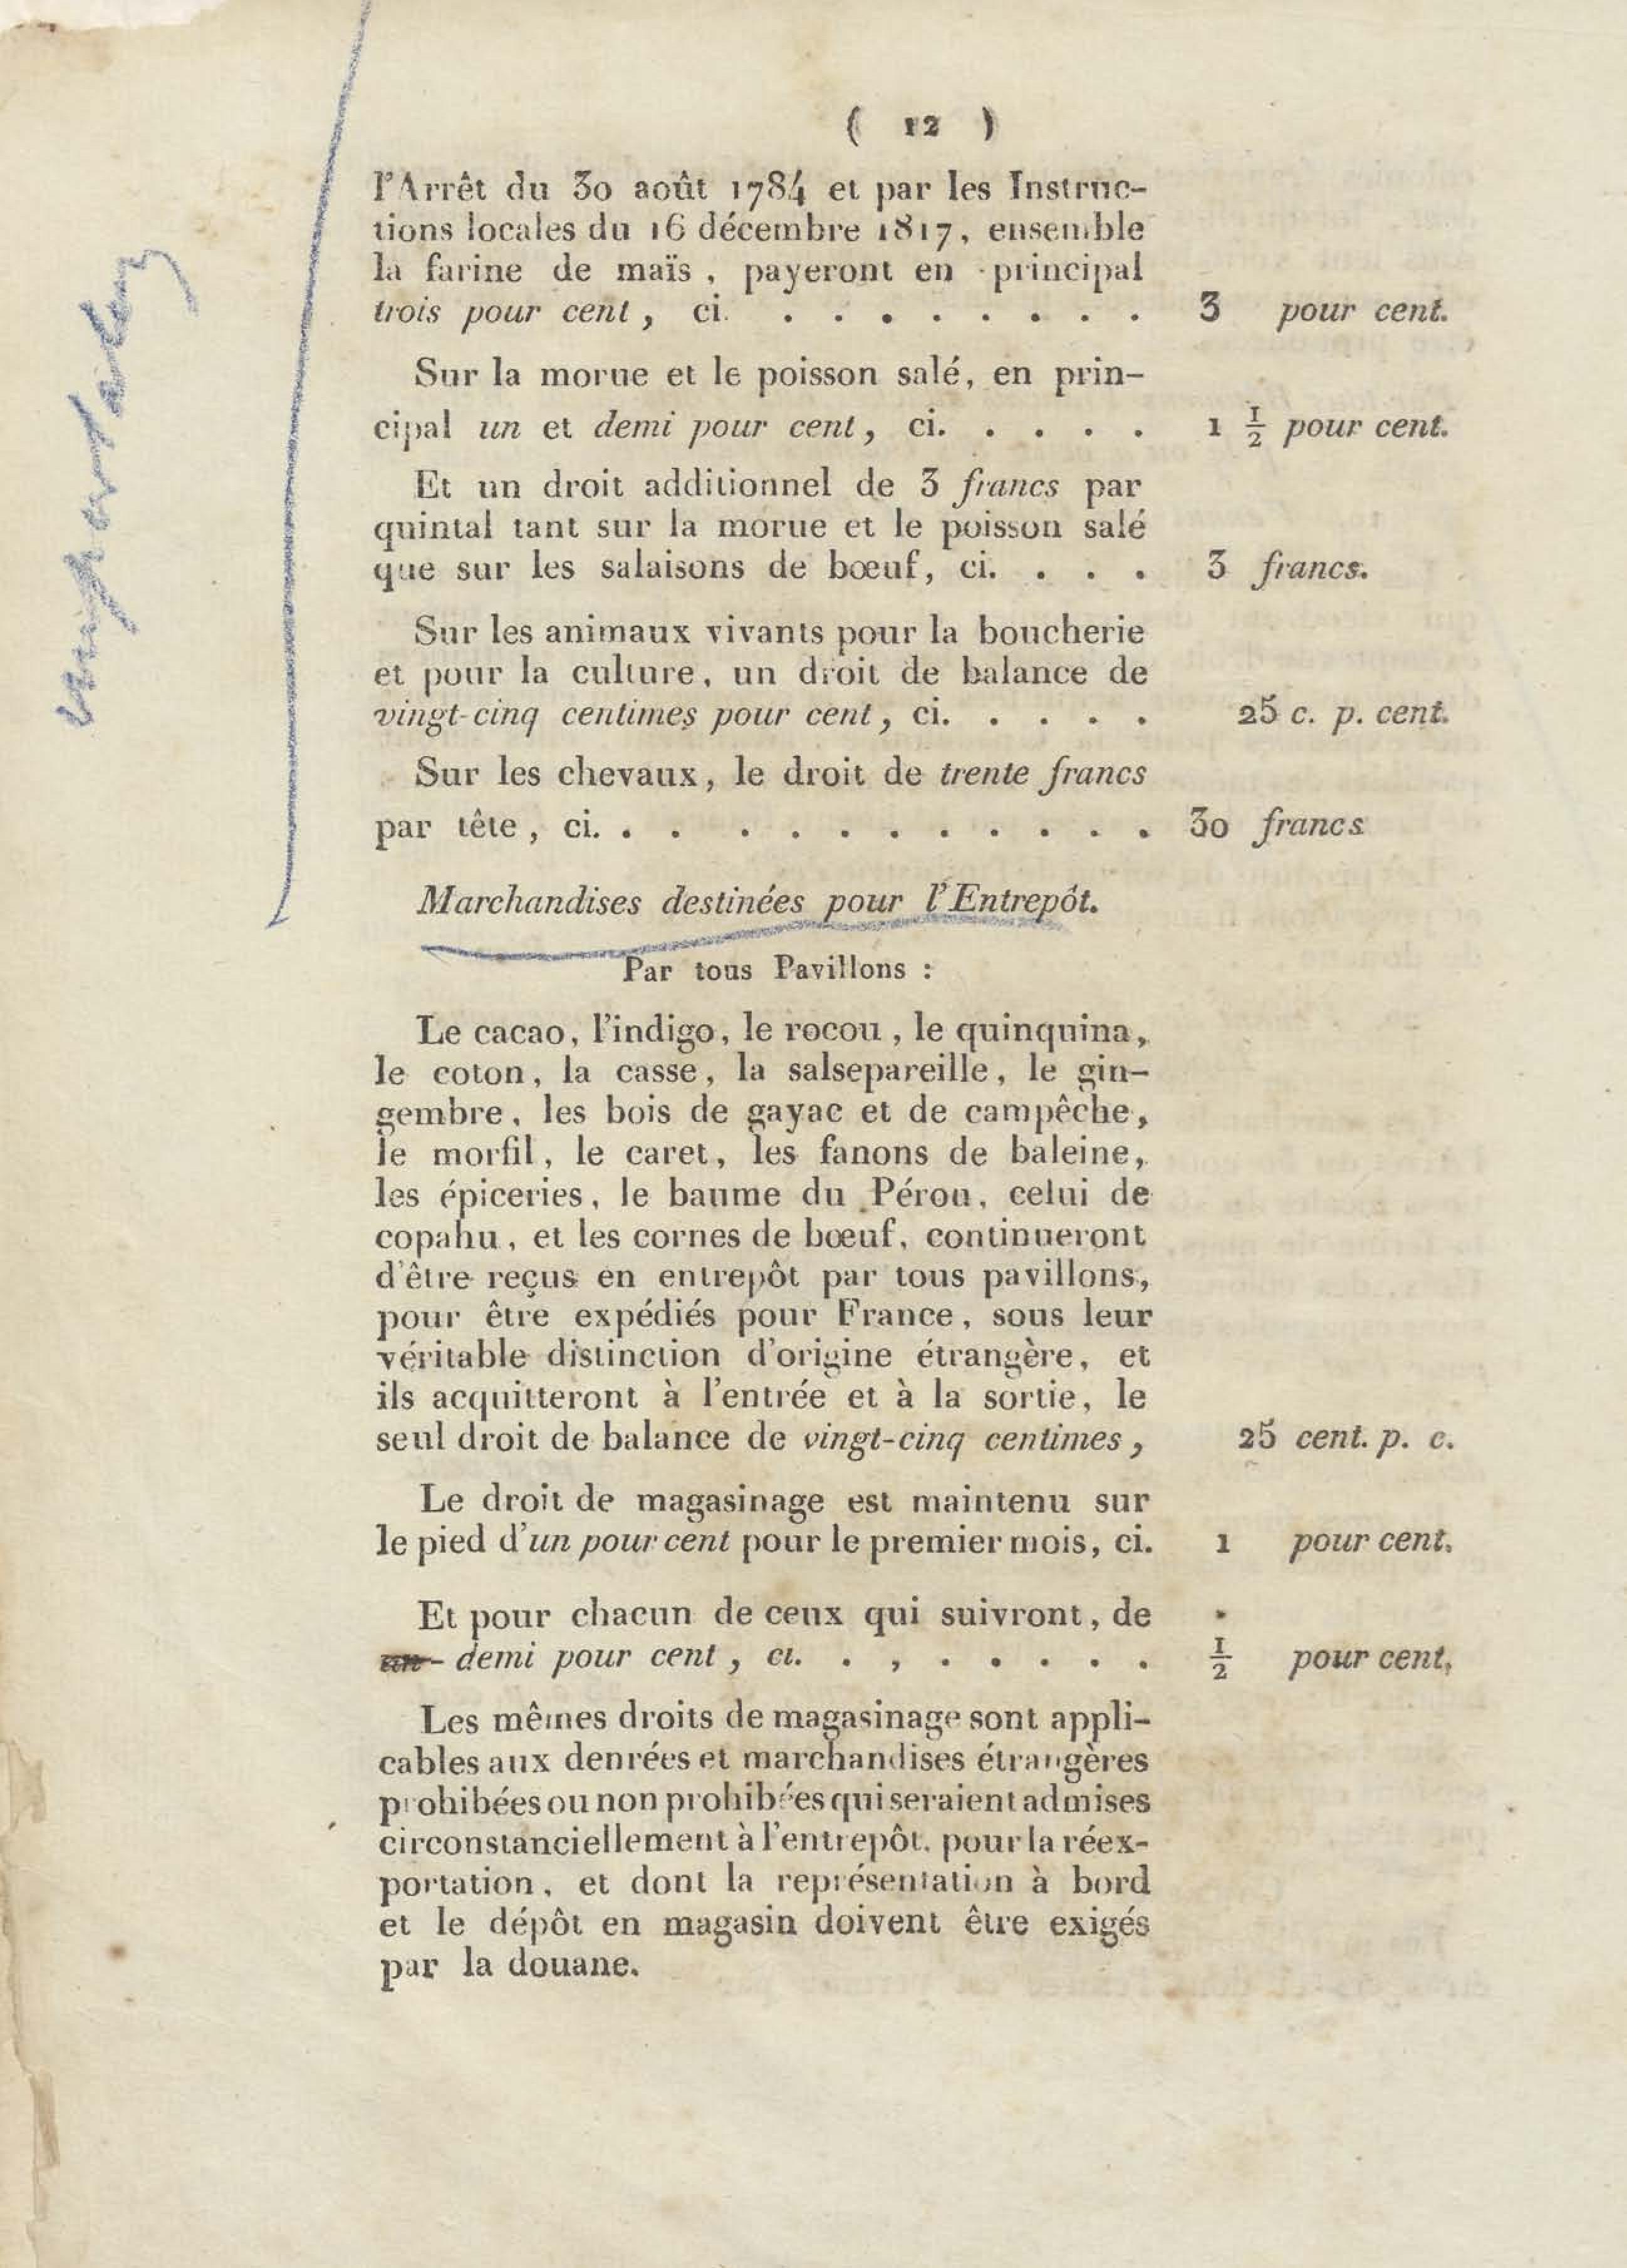 ( 12 )
l'Arrêt du 30 août 1784 et par les Instruc-
tions locales du 16 décembre 1817, ensemble
la farine de maïs, payeront en principal
trois pour cent, ci. . . . . . . . . 3 pour cent.
Sur la morue et le poisson salé, en prin-
cipal un et demi pour cent, ci. . . . . 1 ½ pour cent.
Et un droit additionnel de 3 francs par
quintal tant sur la morue et le poisson salé
que sur les salaisons de bœuf, ci. . . . 3 francs.
Sur les animaux vivants pour la boucherie
et pour la culture, un droit de balance de
vingt-cinq centimes pour cent, ci. . . . . 25 c. p. cent.
Sur les chevaux, le droit de trente francs
par tête, ci. . . . . . . . . . . . 30 francs
Marchandises destinées pour l'Entrepôt.
Par tous Pavillons :
Le cacao, l'indigo, le rocou, le quinquina,
le coton, la casse, la salsepareille, le gin-
gembre, les bois de gayac et de campêche,
le morfil, le caret, les fanons de baleine,
les épiceries, le baume du Pérou, celui de
copahu, et les cornes de bœuf, continueront
d'être reçus en entrepôt par tous pavillons,
pour être expédiés pour France, sous leur
véritable distinction d'origine étrangère, et
ils acquitteront à l'entrée et à la sortie, le
seul droit de balance de vingt-cinq centimes, 25 cent. p. c.
Le droit de magasinage est maintenu sur
le pied d'un pour cent pour le premier mois, ci. 1 pour cent.
Et pour chacun de ceux qui suivront, de
un demi pour cent, ci. . , . . . . . ½ pour cent,
Les mêmes droits de magasinage sont appli-
cables aux denrées et marchandises étrangères
prohibées ou non prohibées qui seraient admises
circonstanciellement à l'entrepôt, pour la réex-
portation, et dont la représentation à bord
et le dépôt en magasin doivent être exigés
par la douane.